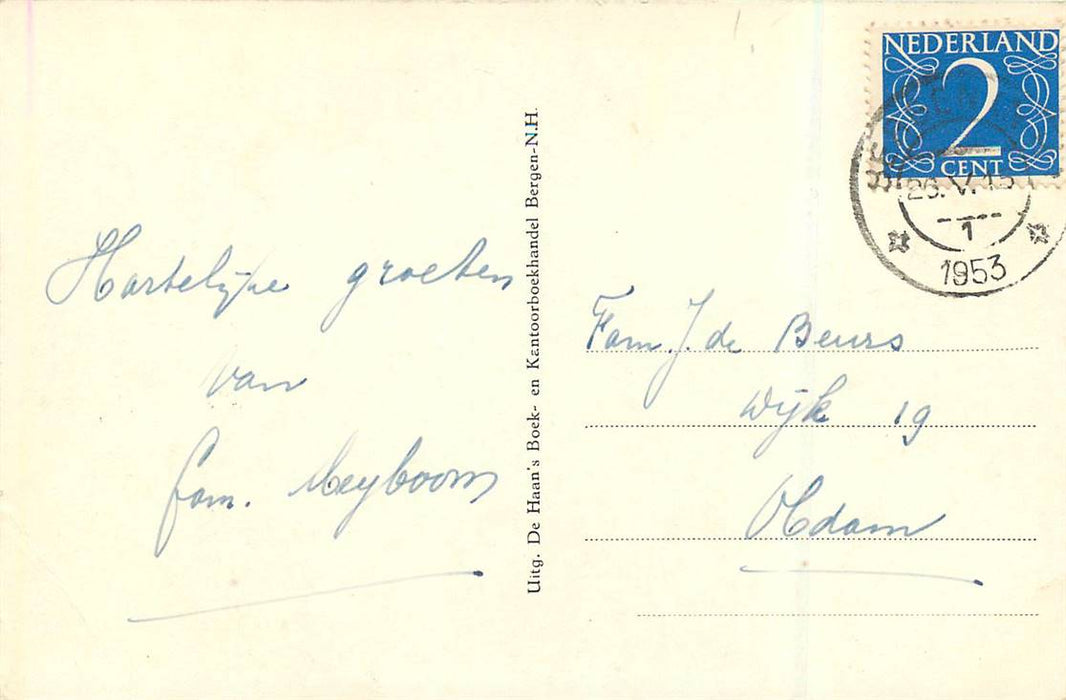 Hartelijke groeten
van
fam. Meyboom
Uitg. De Haan's Boek- en Kantoorboekhandel Bergen-N.H.
NEDERLAND
2
CENT
26.V.15
1
1953
Fam. J. de Beurs
Wijk 19
Obdam